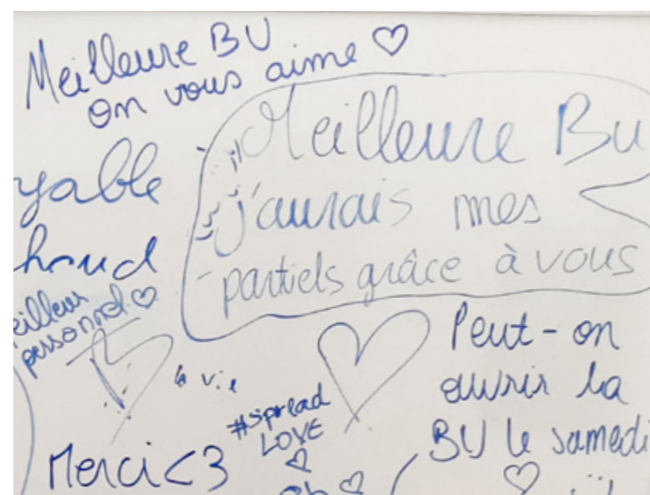 Meilleure BU
on vous aime ♡
Meilleure Bu
j'aurais mes
partiels grâce à vous
yable
haud
eilleur
personnel ♡
la vie
Merci <3
#spread
LOVE
♡
Peut-on
ouvrir la
BU le samedi
♡